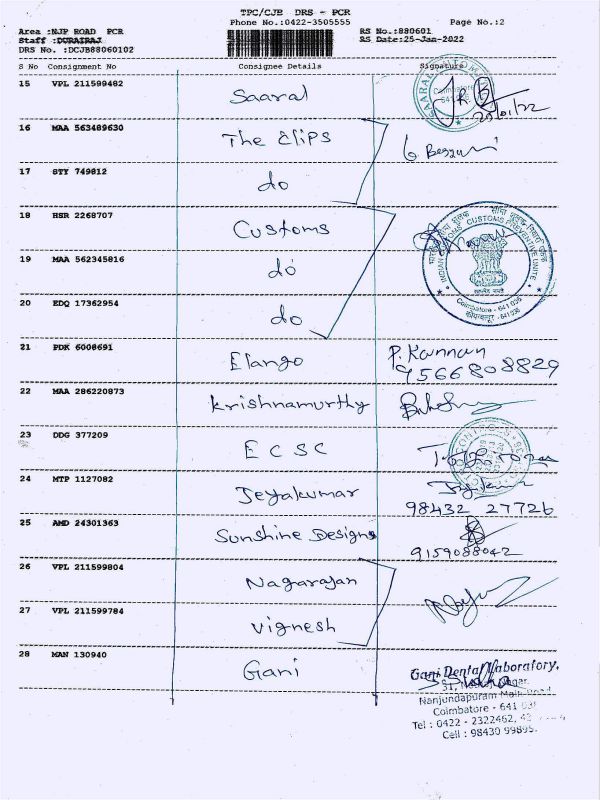 TPC/CJB DRS - PCR
Phone No.:0422-3505555 Page No.:2
Area :NJP ROAD PCR RS No.:880601
Staff :DURAIRAJ RS Date:25-Jan-2022
DRS No. :DCJB88060102
S No Consignment No Consignee Details Signature
15 VPL 211599482 Saaral 25/01/22
16 MAA 563489630 The Clips
17 STY 749812 do
18 HSR 2268707 Customs
19 MAA 562345816 do
20 EDQ 17362954 do
INDIAN CUSTOMS CUSTOMS PREVENTIVE UNIT
सत्यमेव जयते
Coimbatore - 641 036
21 PDK 6008691 Elango P. Kannan
9566808829
22 MAA 286220873 Krishnamurthy
23 DDG 377209 ECSC
24 MTP 1127082 Jeyakumar
98432 27726
25 AMD 24301363 Sunshine Designs
9159088042
26 VPL 211599804 Nagarajan
27 VPL 211599784 Vignesh
28 MAN 130940 Gani
Gani Dental Laboratory,
51,
Nanjundapuram Main Road
Coimbatore - 641
Tel : 0422 - 2322462,
Cell : 98430 99895.